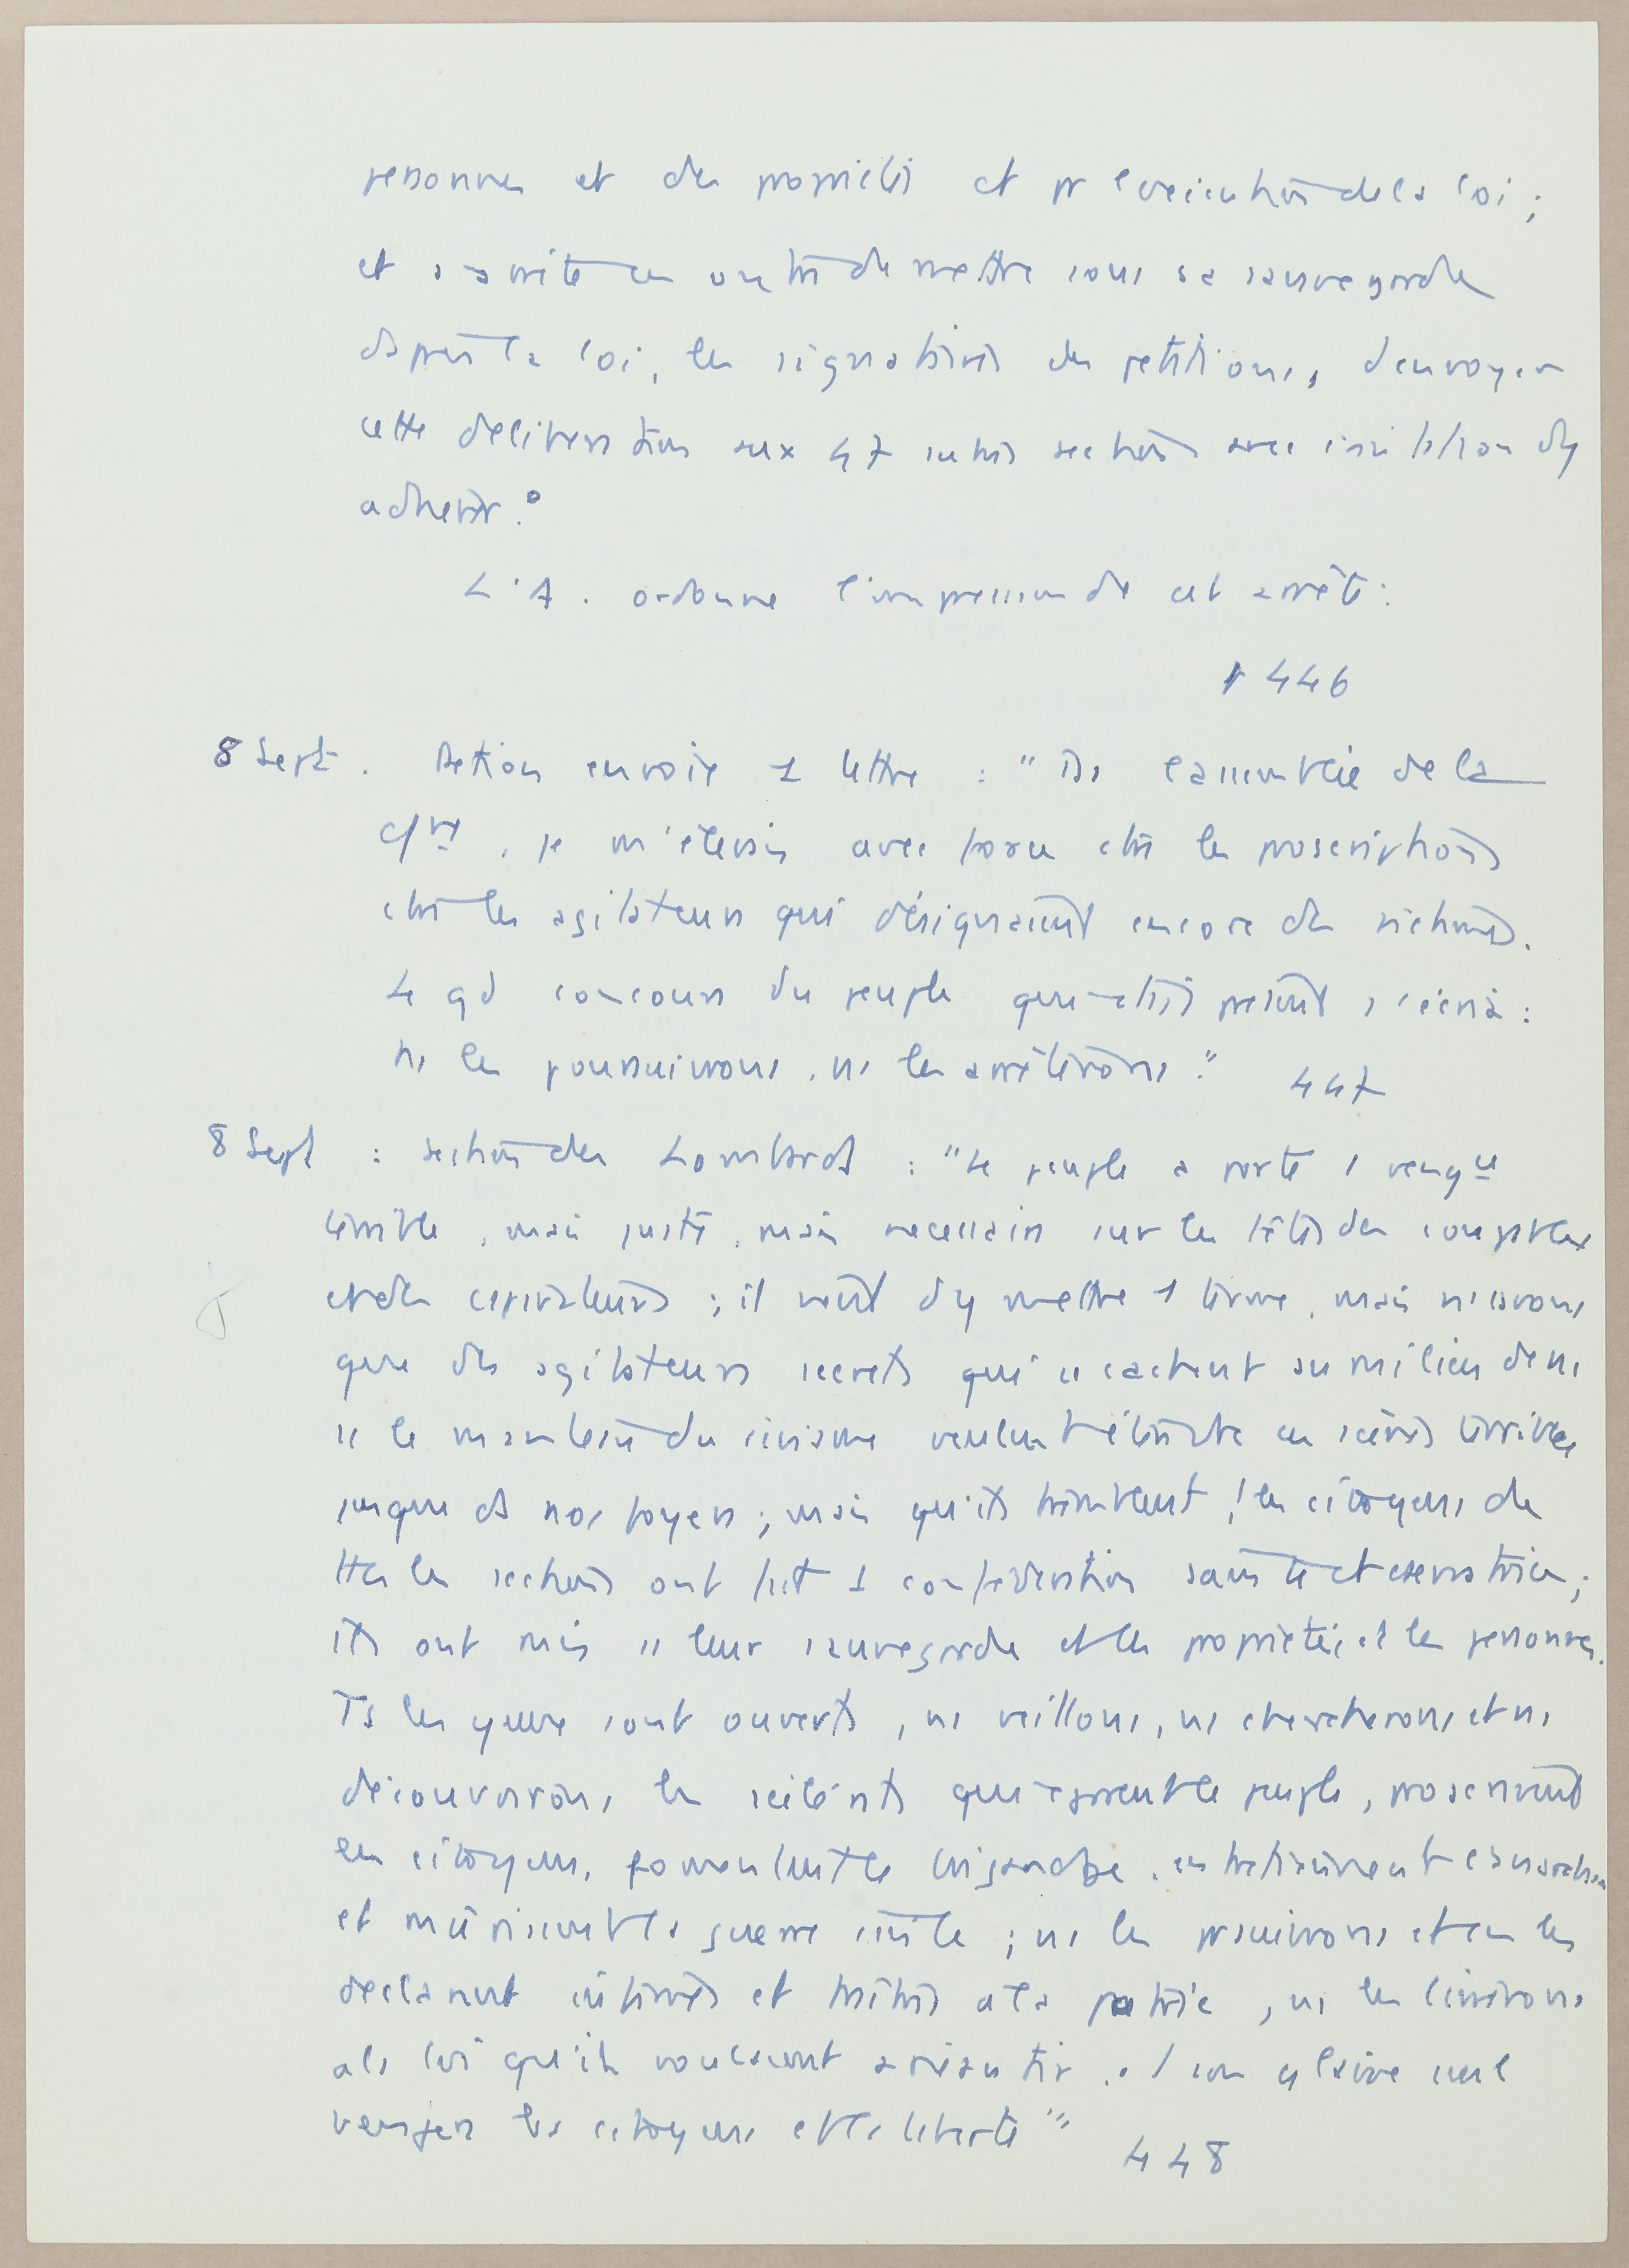 personnes et des propriétés et pr l'exécution de la loi ;
et a arrêté en outre de mettre sous sa sauvegarde
d'après la loi, les signataires des pétitions, d'envoyer
cette délibération aux 47 autres sections avec invitation d'y
adhérer."
L'A. ordonne l'impression de cet arrêté :
p 446
8 Sept. Petion envoie 1 lettre : " Ds l'assemblée de la
je m'élevais avec force ctre les proscriptions
ctre les agitateurs qui désignaient encore des victimes.
Le gd concours du peuple qui était présent s'écria :
ns les poursuivrons, ns les arrêterons." 447
8 Sept : section des Lombards : "Le peuple a porté 1 vengce
terrible, mais juste, mais nécessaire sur les têtes des coupables
et des conspirateurs ; il vient d'y mettre 1 terme, mais ns savons
que des agitateurs secrets qui se cachent au milieu de ns
ss le manteau du civisme veulent rétablir ces scènes terribles
jusque ds nos foyers ; mais qu'ils tremblent ! les citoyens de
ttes les sections ont fait 1 confédération sainte et conservatrice ;
ils ont mis ss leur sauvegarde et les propriétés et les personnes.
Ts les yeux sont ouverts, ns veillons, ns chercherons et ns
découvrirons les scélérats qui égarent le peuple, proscrivent
les citoyens, fomentent le brigandage, entretiennent l'anarchie
et mûrissent la guerre civile ; ns les prsuivrons et en les
déclarant infâmes et traîtres à la patrie, ns les livrerons
à la loi qu'ils voulaient anéantir. son glaive seul
vengera les citoyens et la liberté"
448